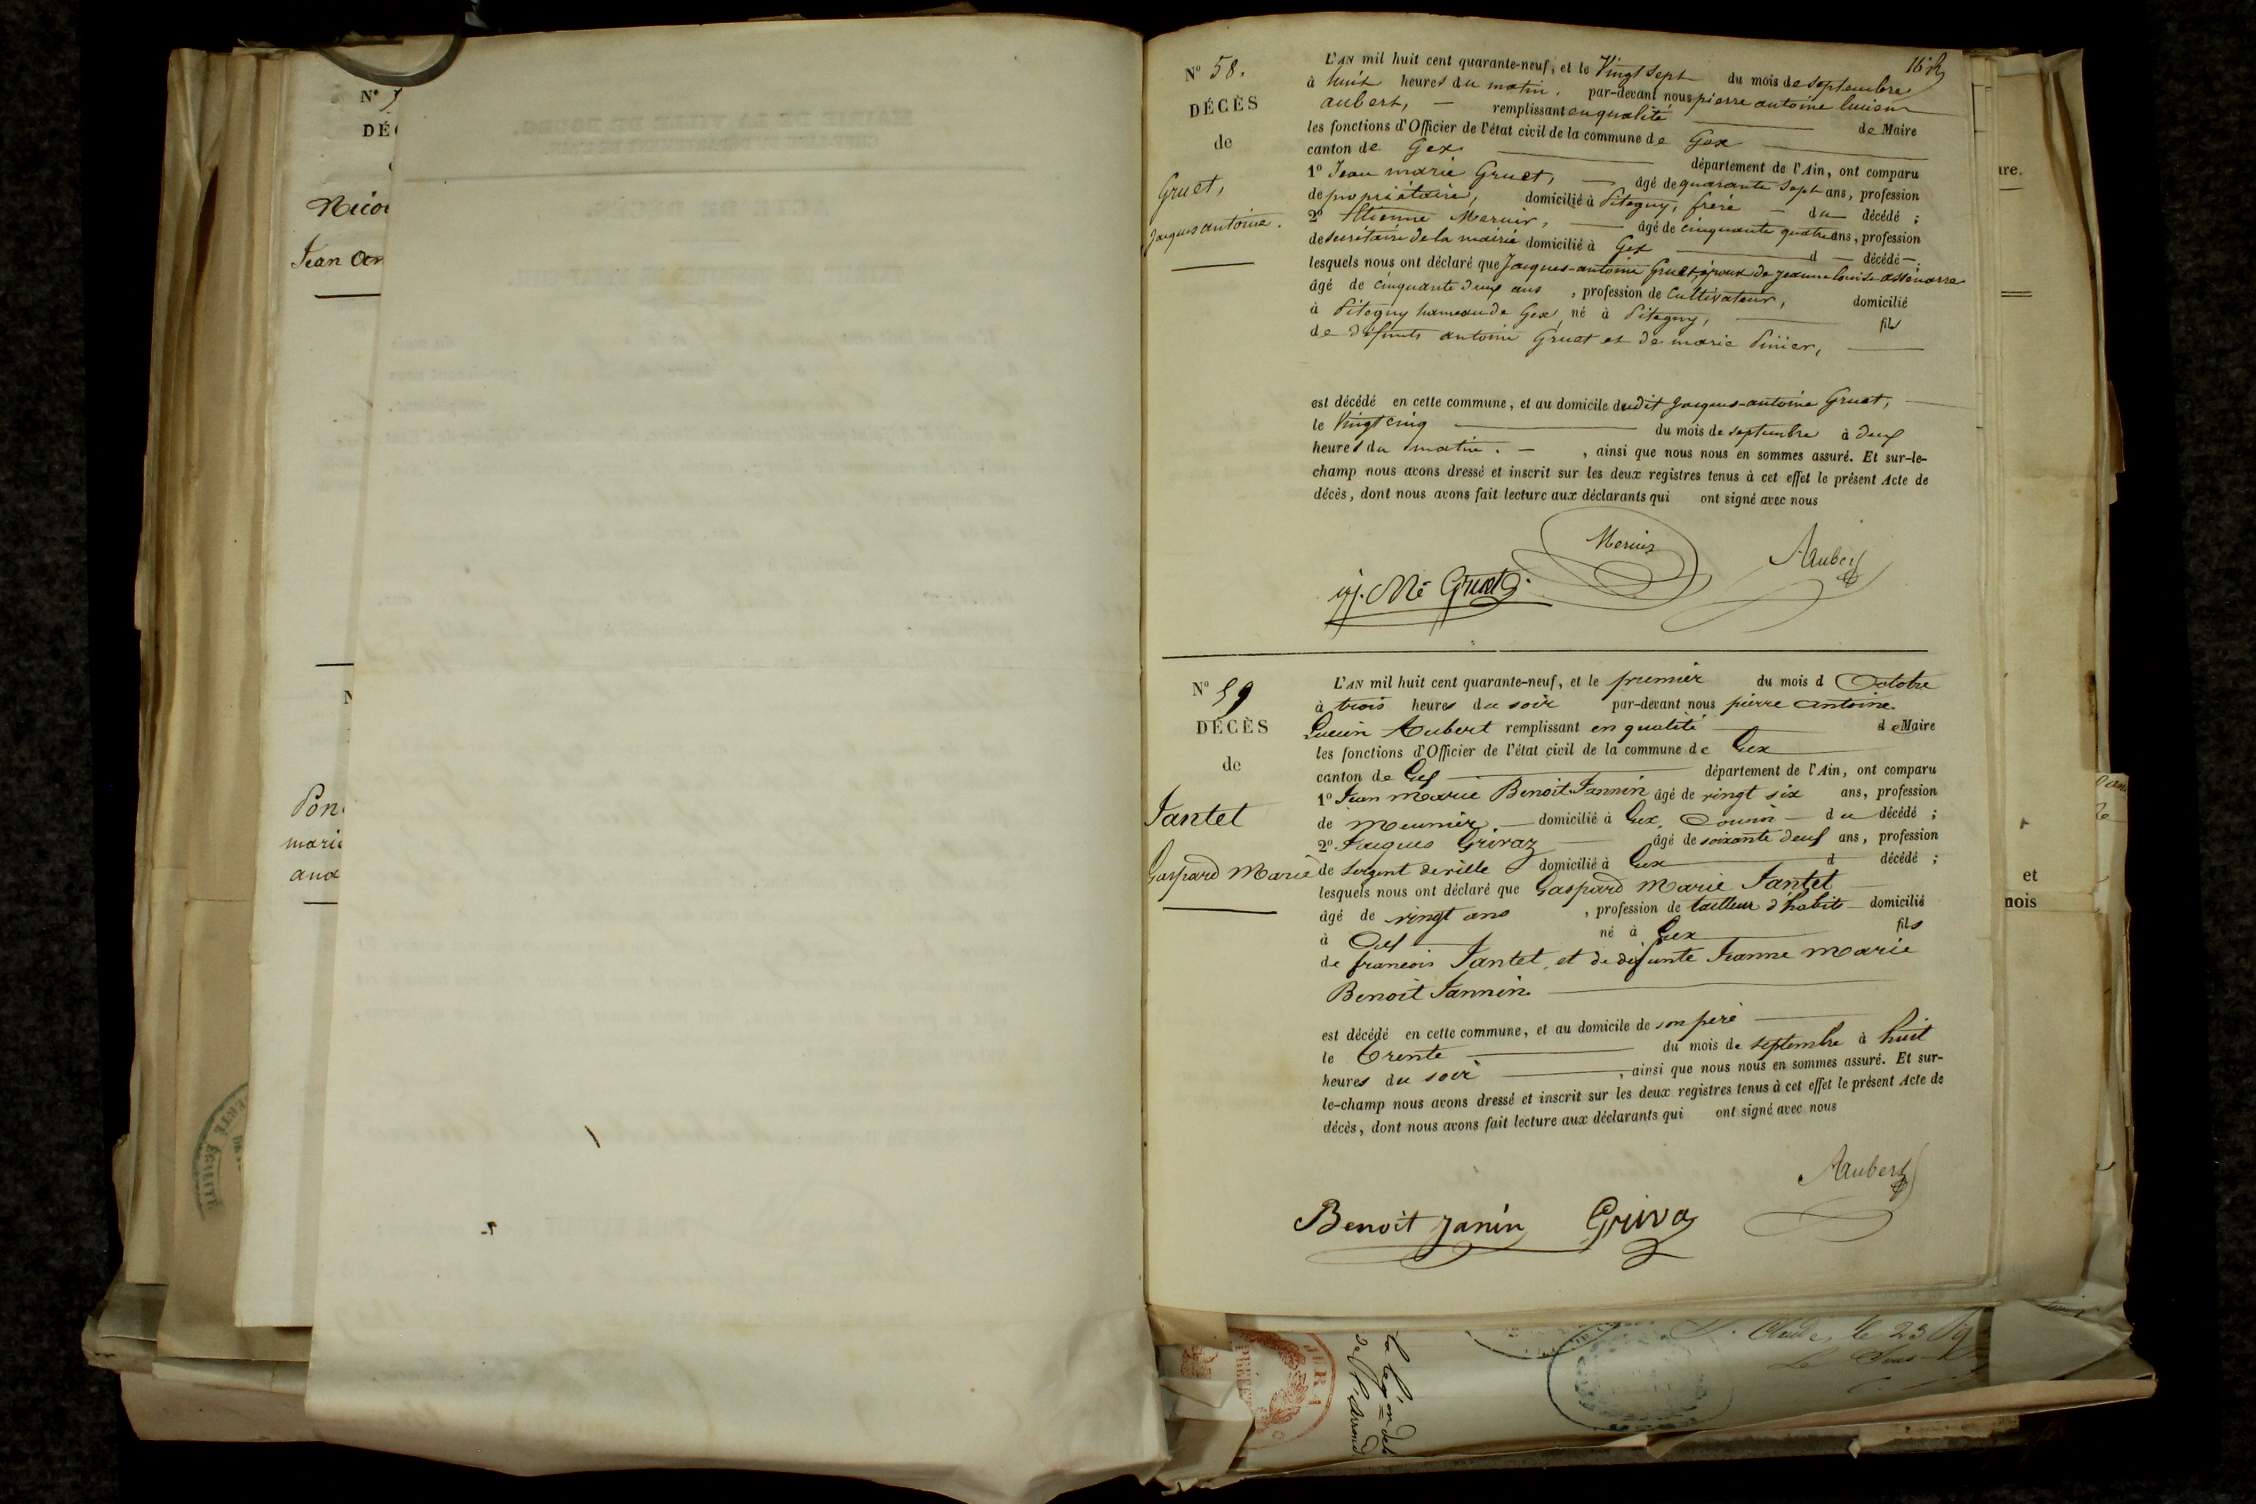 Nicou
Jean an
Pon
marie
and
16
N° 58.
DÉCÈS
de
Gruet,
Jacques antoine.
L'AN mil huit cent quarante-neuf, et le Vingt sept du mois de septembre
à huit heures du matin. par-devant nous pierre antoine lucien
aubert, remplissant en qualité de Maire
les fonctions d'Officier de l'état civil de la commune de Gex
canton de Gex département de l'Ain, ont comparu
1° Jean marie Gruet, âgé de quarante sept ans, profession
de propriétaire, domicilié à Pitegny, frère du décédé ;
2° Etienne Mercier, âgé de cinquante quatre ans, profession
de secrétaire de la mairie domicilié à Gex d décédé ;
lesquels nous ont déclaré que Jacques-antoine Gruet, époux de jeanne louise
âgé de cinquante deux ans , profession de Cultivateur, domicilié
à Pitegny hameau de Gex, né à Pitegny, fils
de défunts antoine Gruet et de marie
est décédé en cette commune, et au domicile dudit Jacques-antoine Gruet,
le Vingt cinq du mois de septembre à deux
heures du matin. , ainsi que nous nous en sommes assuré. Et sur-le-
champ nous avons dressé et inscrit sur les deux registres tenus à cet effet le présent Acte de
décès, dont nous avons fait lecture aux déclarants qui ont signé avec nous
Mercier
Aubert
j. Mé Gruet
N° 59
DÉCÈS
de
Jantet
Gaspard Marie
L'AN mil huit cent quarante-neuf, et le premier du mois d Octobre
à trois heures du soir par-devant nous pierre antoine
Lucien Aubert remplissant en qualité de Maire
les fonctions d'Officier de l'état civil de la commune de Gex
canton de Gex département de l'Ain, ont comparu
1° Jean Marie Benoit Jannin âgé de vingt six ans, profession
de meunier domicilié à Gex, Cousin du décédé ;
2° Jacques Grivaz âgé de soixante deux ans, profession
de sergent de ville domicilié à Gex d décédé ;
lesquels nous ont déclaré que Gaspard Marie Jantet
âgé de vingt ans , profession de tailleur d'habits domicilié
à Gex né à Gex fils
de francois Jantet, et de défunte Jeanne Marie
Benoit Jannin
est décédé en cette commune, et au domicile de son père
le trente du mois de septembre à huit
heures du soir , ainsi que nous nous en sommes assuré. Et sur-
le-champ nous avons dressé et inscrit sur les deux registres tenus à cet effet le présent Acte de
décès, dont nous avons fait lecture aux déclarants qui ont signé avec nous
Aubert
Benoit Janin Griva
et
mois